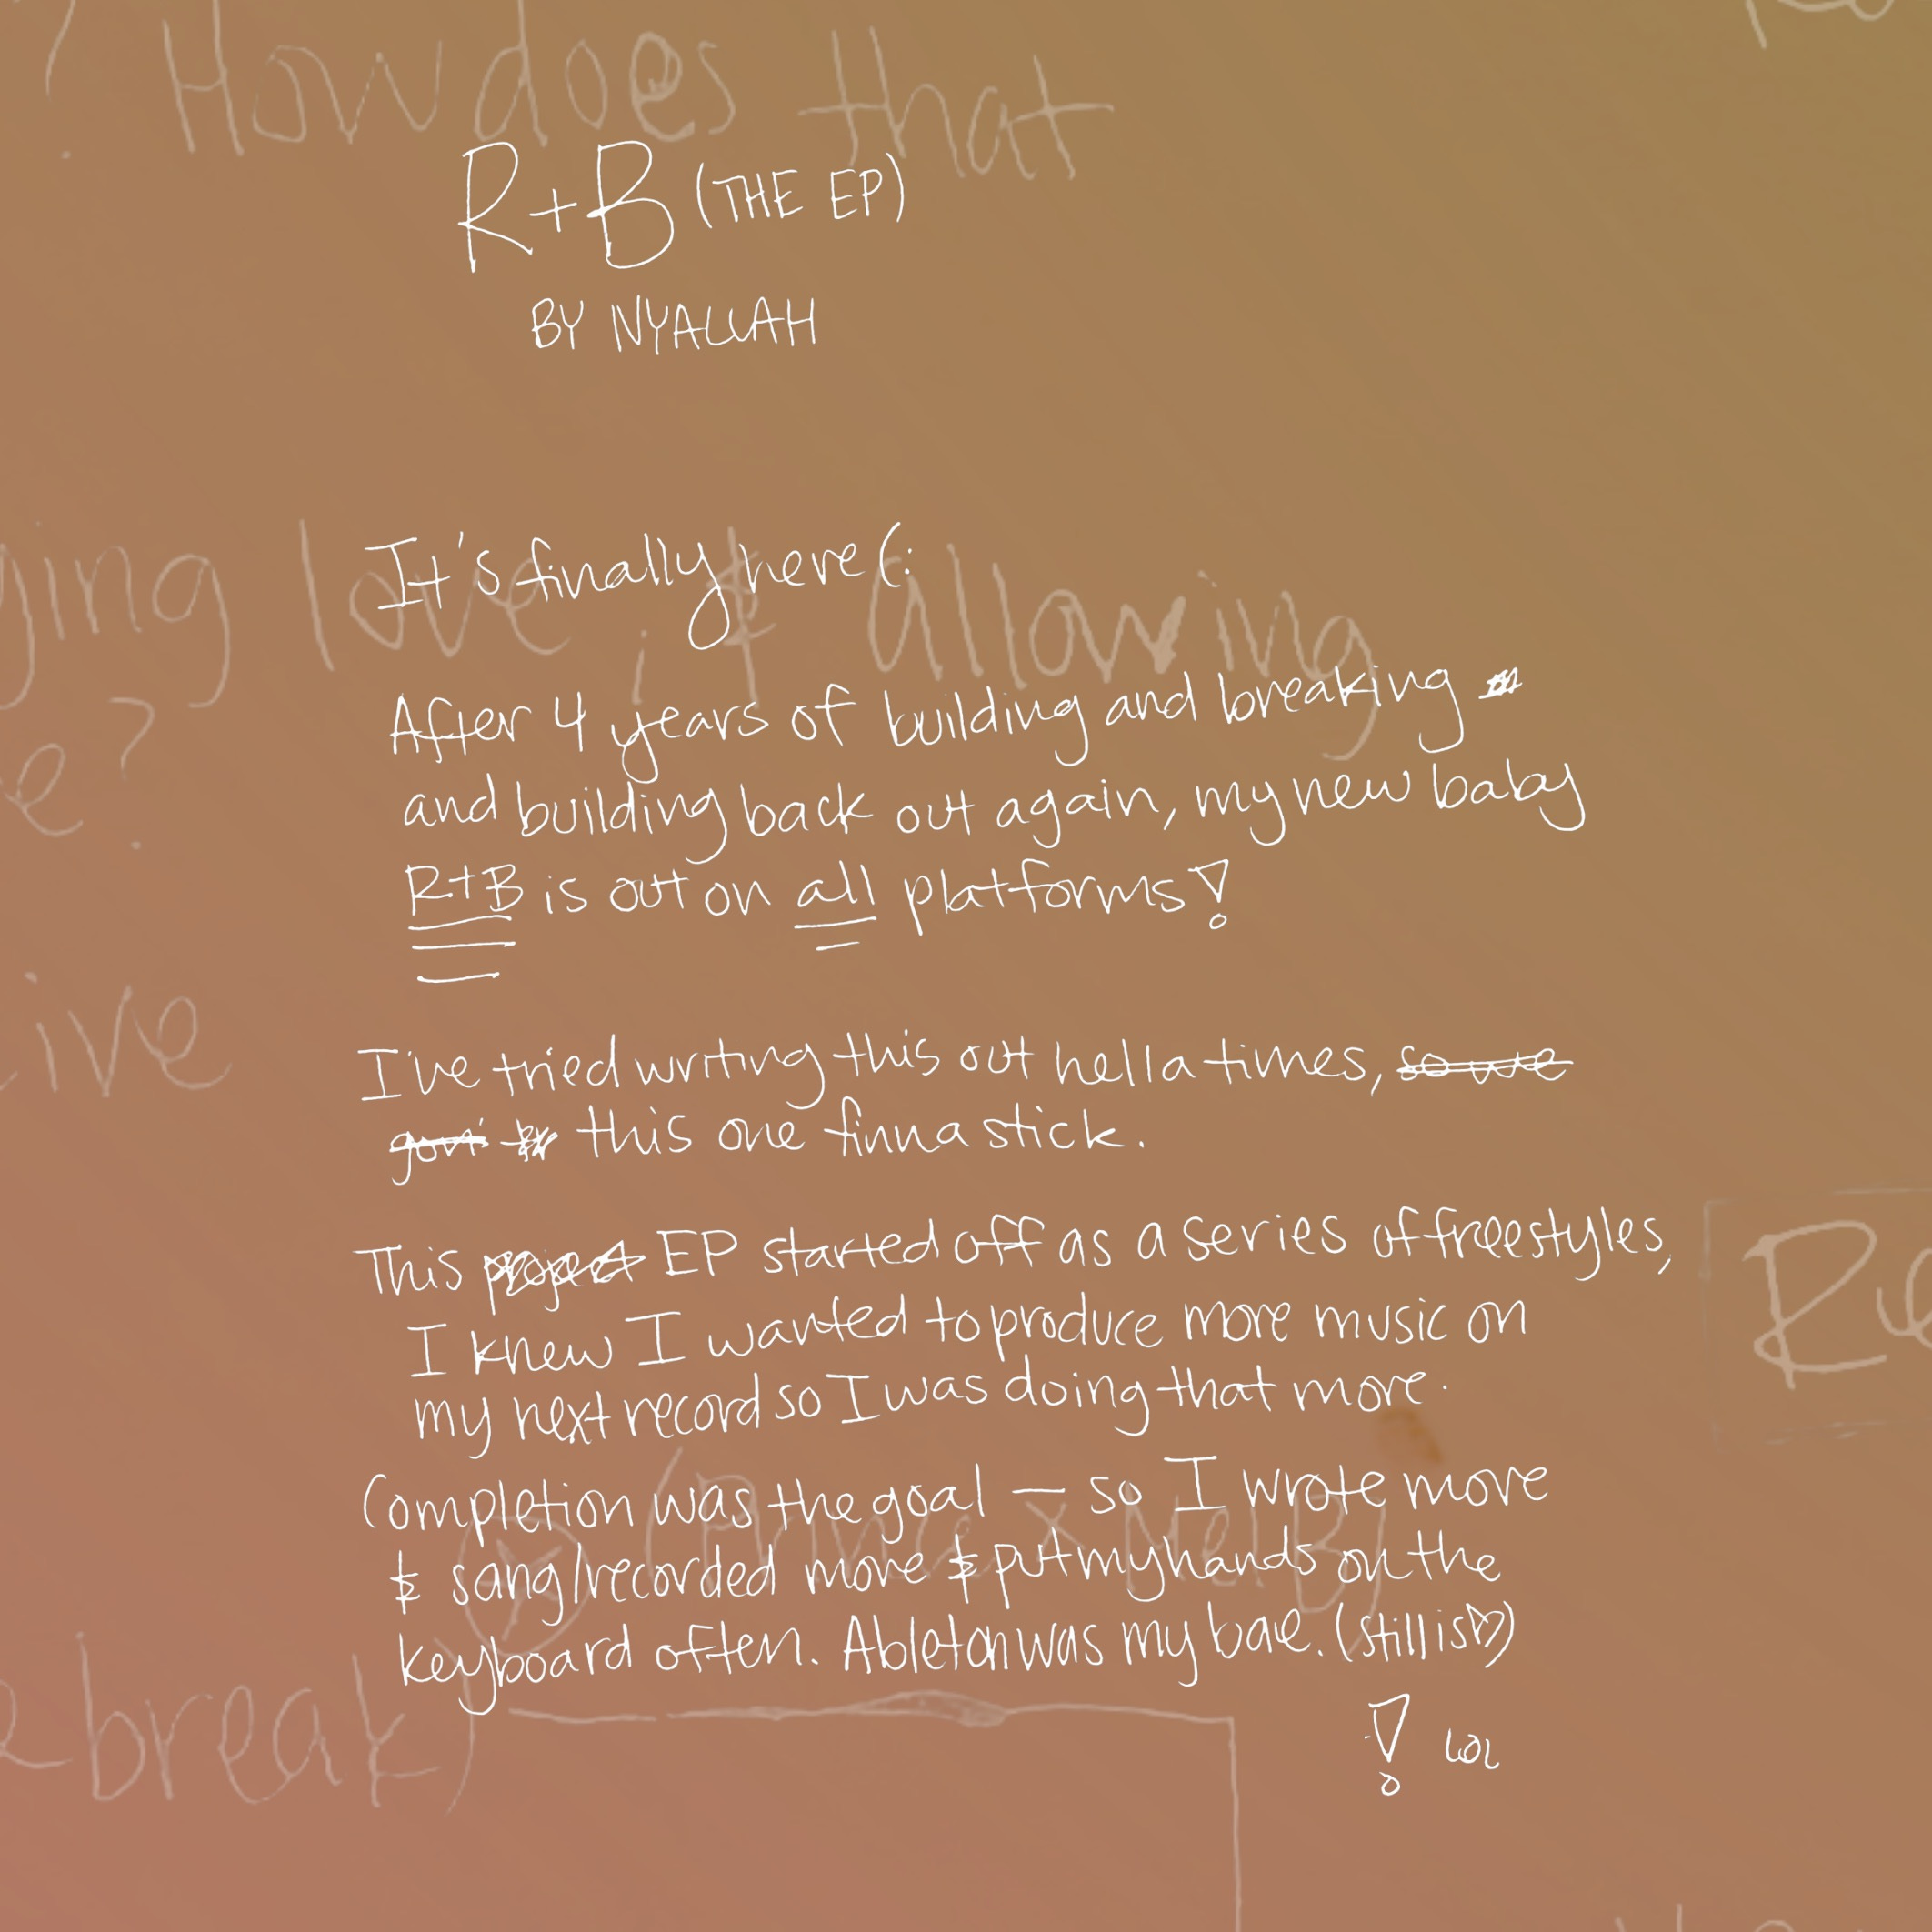 ? How does that
R+B (THE EP)
BY NYALLAH
It's finally here (:
ying love, & allowing
After 4 years of building and breaking
e?
and building back out again, my new baby
R+B is out on all platforms!
ive
I've tried writing this out hella times, so we
this one finna stick.
This project EP started off as a series of freestyles,
I knew I wanted to produce more music on
my next record so I was doing that more.
Completion was the goal — so I wrote more
& sang/recorded more & put my hands on the
keyboard often. Ableton was my bae. (still is♡)
break)
! LOL